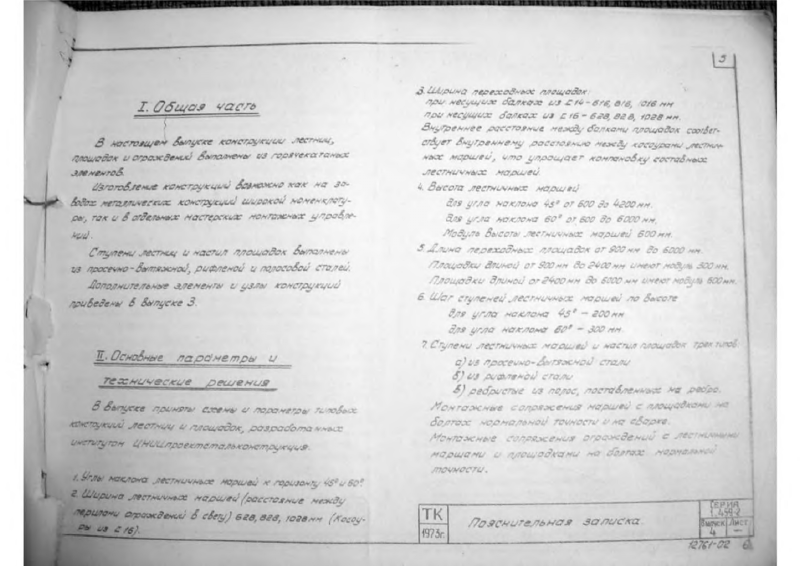 I. Общая часть
В настоящем выпуске конструкции лестниц,
площадок и ограждений выполнены из горячекатаных
элементов.
Изготовление конструкций возможно как на за-
водах металлических конструкций широкой номенклату-
ры, так и в отдельных мастерских монтажных управле-
ний.
Ступени лестниц и настил площадок выполнены
из просечно-вытяжной, рифленой и полосовой сталей.
Дополнительные элементы и узлы конструкций
приведены в выпуске 3.
II. Основные параметры и
технические решения
В выпуске приняты схемы и параметры типовых
конструкций лестниц и площадок, разработанных
институтом ЦНИИпроектстальконструкция.
1. Углы наклона лестничных маршей к горизонту 45° и 60°.
2. Ширина лестничных маршей (расстояние между
перилами ограждений в свету) 628, 828, 1028 мм (Косоу-
ры из С16).
3
3. Ширина переходных площадок:
при несущих балках из С14 - 616, 816, 1016 мм
при несущих балках из С16 - 628, 828, 1028 мм.
Внутреннее расстояние между балками площадок соответ-
ствует внутреннему расстоянию между косоурами лестнич-
ных маршей, что упрощает компановку составных
лестничных маршей.
4. Высота лестничных маршей
для угла наклона 45° от 600 до 4200 мм.
для угла наклона 60° от 600 до 6000 мм.
Модуль высоты лестничных маршей 600 мм.
5. Длина переходных площадок от 900 мм до 6000 мм.
Площадки длиной от 900 мм до 2400 мм имеют модуль 300 мм.
Площадки длиной от 2400 мм до 6000 мм имеют модуль 600 мм.
6. Шаг ступеней лестничных маршей по высоте
для угла наклона 45° - 200 мм
для угла наклона 60° - 300 мм.
7. Ступени лестничных маршей и настил площадок трех типов:
а) из просечно-вытяжной стали
б) из рифленой стали
в) ребристые из полос, поставленных на ребро.
Монтажные сопряжения маршей с площадками на
болтах нормальной точности и на сварке.
Монтажные сопряжения ограждений с лестничными
маршами и площадками на болтах нормальной
точности.
ТК
1973г.
Пояснительная записка.
Серия
1.459-2
Выпуск 4
Лист —
12761-02 6